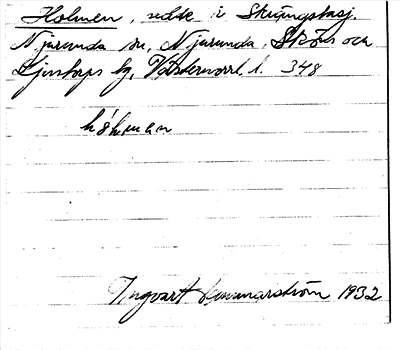 Holmen, udde i Skrängstasj.
Njurunda sn, Njurunda, Sköns och
Ljustorps tg, Västernorrl. l. 348
hólman
Ingvart Hammarström 1932